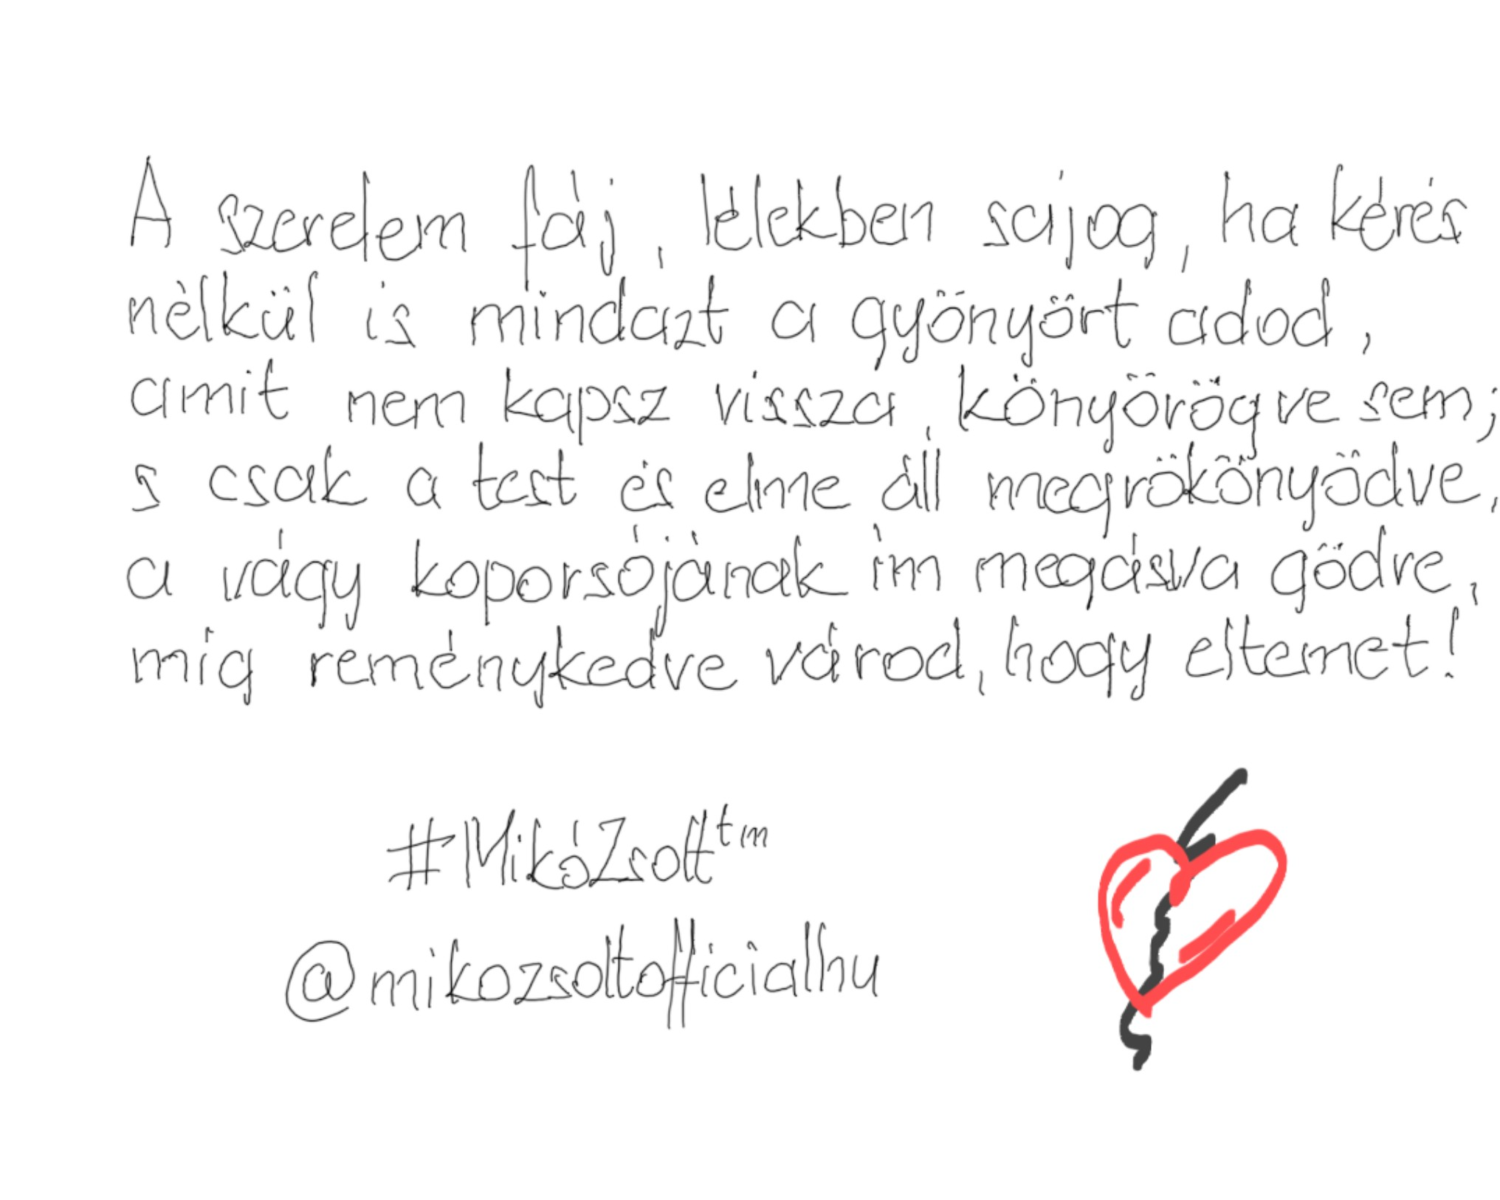 A szerelem fáj, lélekben sajog, ha kérés
nélkül is mindazt a gyönyört adod,
amit nem kapsz vissza, könyörögve sem;
s csak a test és elme áll megrökönyödve,
a vágy koporsójának ím megásva gödre,
míg reménykedve várod, hogy eltemet!
#MikóZsolt™
@mikozsoltofficialhu